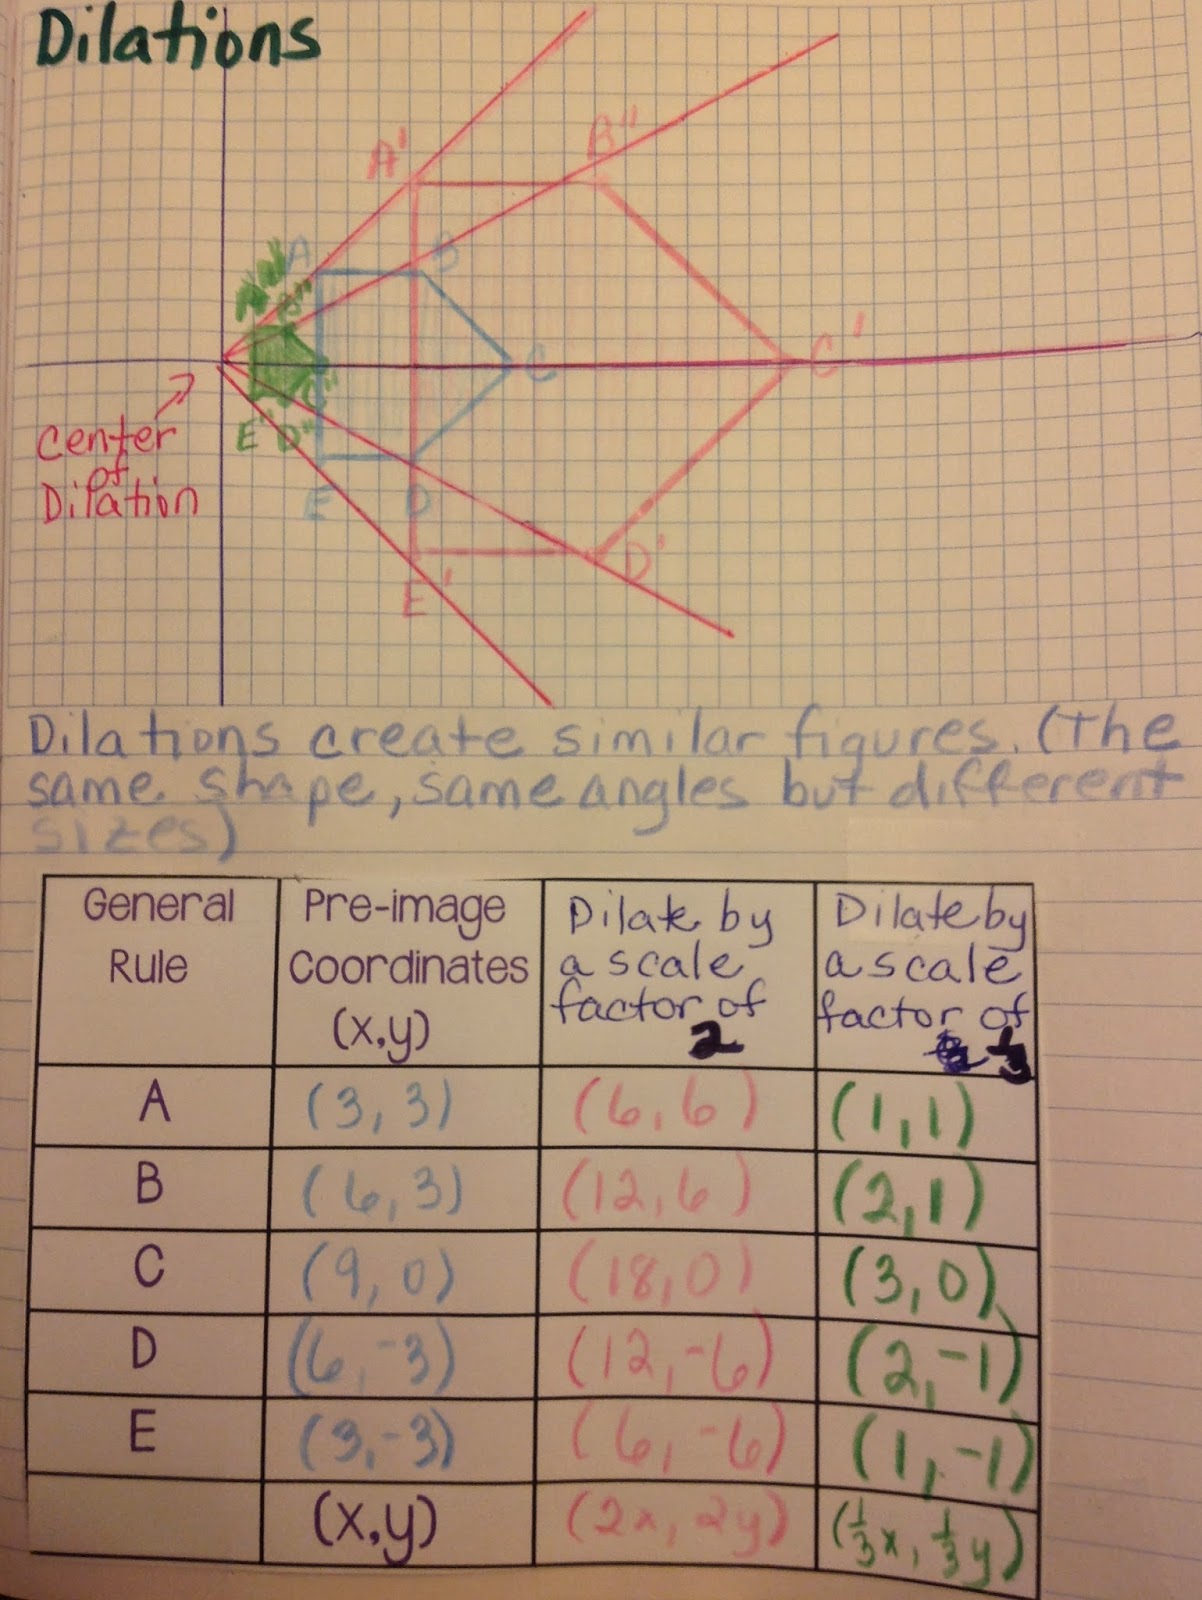 Dilations
A'
B"
A
B
B"
C
C'
C"
E' D"
Center
of
Dilation
E
D
D'
E'
Dilations create similar figures. (The
same shape, same angles but different
sizes)
General Rule
Pre-image Coordinates (x,y)
Dilate by a scale factor of 2
Dilate by a scale factor of 1/3
A (3, 3) (6, 6) (1, 1)
B (6, 3) (12, 6) (2, 1)
C (9, 0) (18, 0) (3, 0)
D (6, -3) (12, -6) (2, -1)
E (3, -3) (6, -6) (1, -1)
(x,y) (2x, 2y) (1/3x, 1/3y)